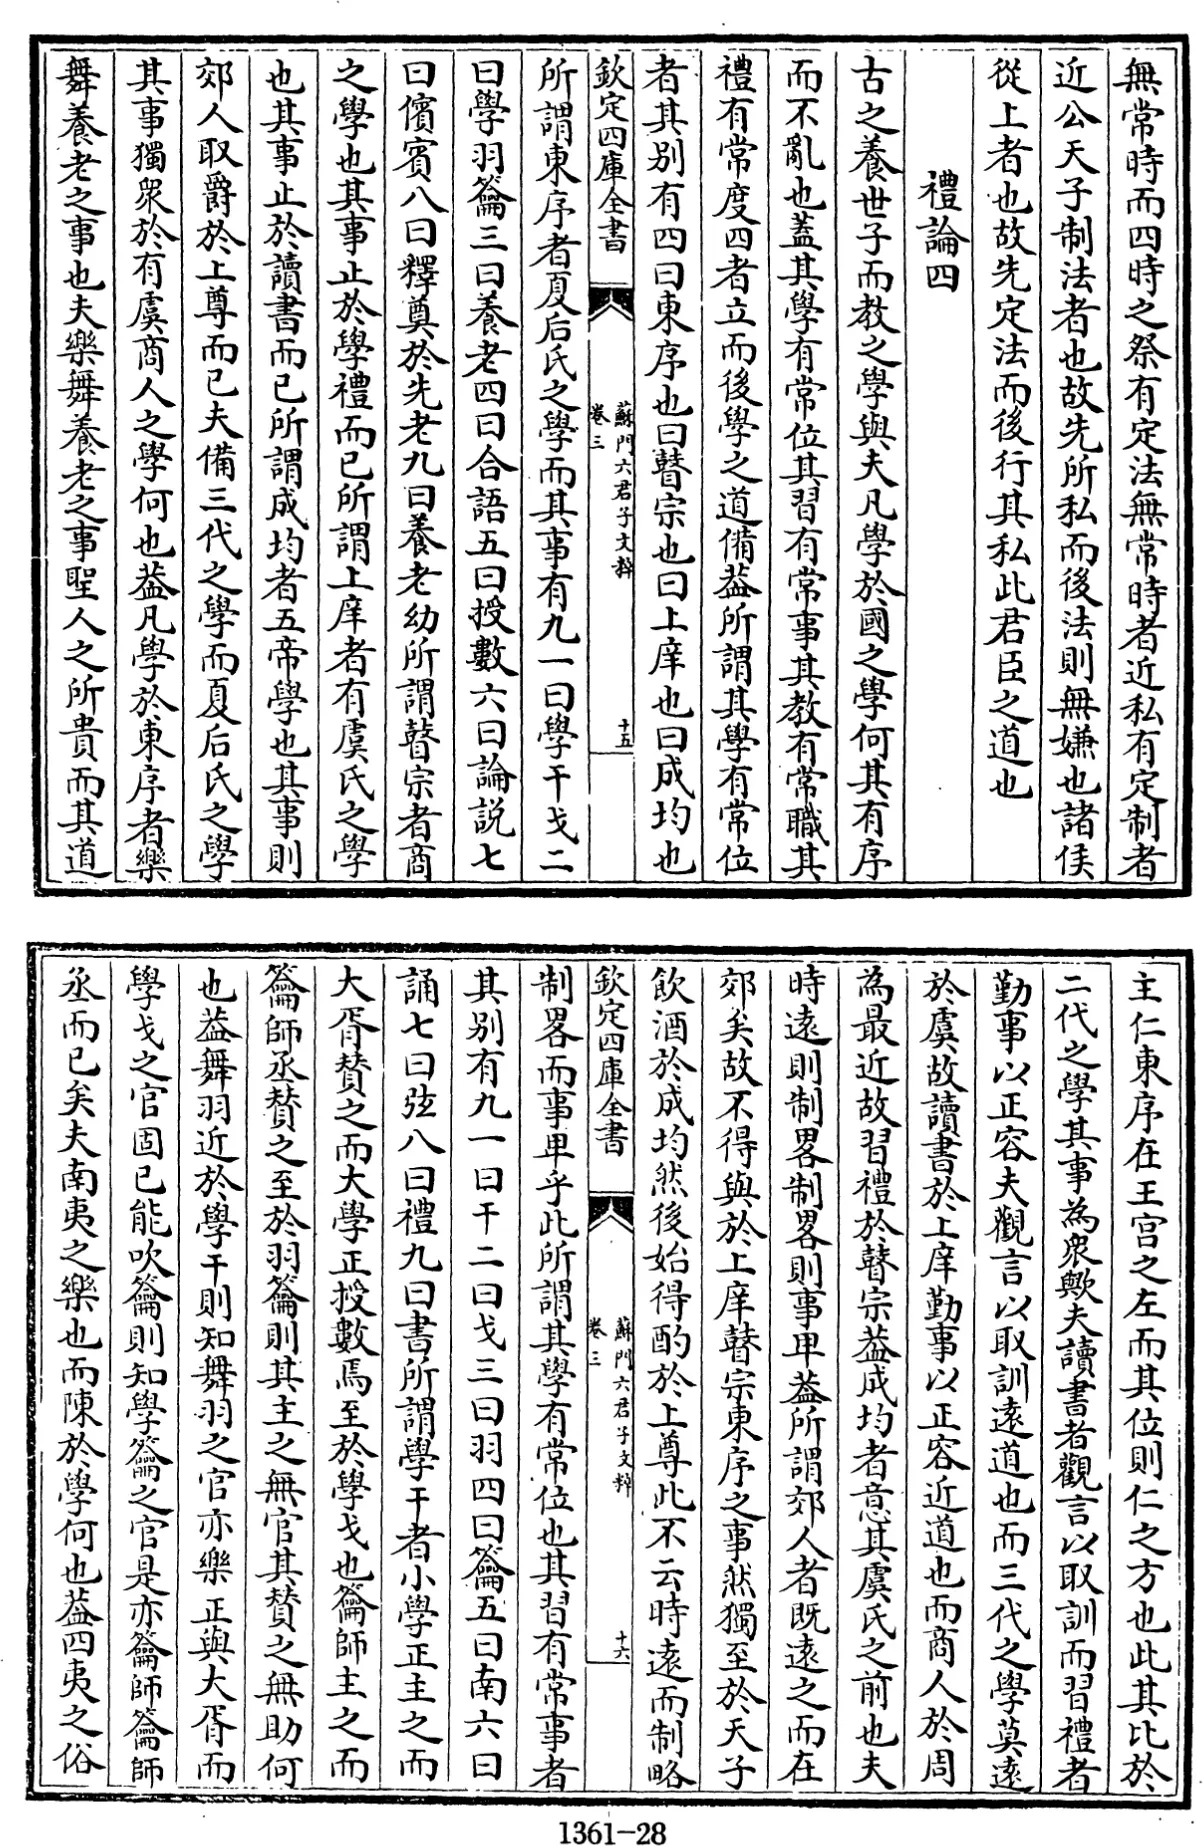 無常時而四時之祭有定法無常時者近私有定制者
近公天子制法者也故先所私而後法則無嫌也諸侯
從上者也故先定法而後行其私此君臣之道也
禮論四
古之養世子而教之學與夫凡學於國之學何其有序
而不亂也蓋其學有常位其習有常事其教有常職其
禮有常度四者立而後學之道備葢所謂其學有常位
者其別有四曰東序也曰瞽宗也曰上庠也曰成均也
欽定四庫全書
蘇門六君子文粹
卷三
十五
所謂東序者夏后氏之學而其事有九一曰學干戈二
曰學羽籥三曰養老四曰合語五曰授數六曰論說七
曰儐賓八曰釋奠於先老九曰養老幼所謂瞽宗者商
之學也其事止於學禮而已所謂上庠者有虞氏之學
也其事止於讀書而已所謂成均者五帝學也其事則
郊人取爵於上尊而已夫備三代之學而夏后氏之學
其事獨衆於有虞商人之學何也葢凡學於東序者樂
舞養老之事也夫樂舞養老之事聖人之所貴而其道
主仁東序在王宫之左而其位則仁之方也此其比於
二代之學其事為衆歟夫讀書者觀言以取訓而習禮者
勤事以正容夫觀言以取訓遠道也而三代之學莫遠
於虞故讀書於上庠勤事以正容近道也而商人於周
為最近故習禮於瞽宗葢成均者意其虞氏之前也夫
時遠則制畧制畧則事卑葢所謂郊人者既遠之而在
郊矣故不得與於上庠瞽宗東序之事然獨至於天子
飲酒於成均然後始得酌於上尊此不云時遠而制略
欽定四庫全書
蘇門六君子文粹
卷三
十六
制畧而事卑乎此所謂其學有常位也其習有常事者
其別有九一曰干二曰戈三曰羽四曰籥五曰南六曰
誦七曰弦八曰禮九曰書所謂學干者小學正主之而
大胥贊之而大學正授數焉至於學戈也籥師主之而
籥師丞贊之至於羽籥則其主之無官其贊之無助何
也葢舞羽近於學干則知舞羽之官亦樂正與大胥而
學戈之官固已能吹籥則知學籥之官是亦籥師籥師
丞而已矣夫南夷之樂也而陳於學何也葢四夷之俗
1361-28